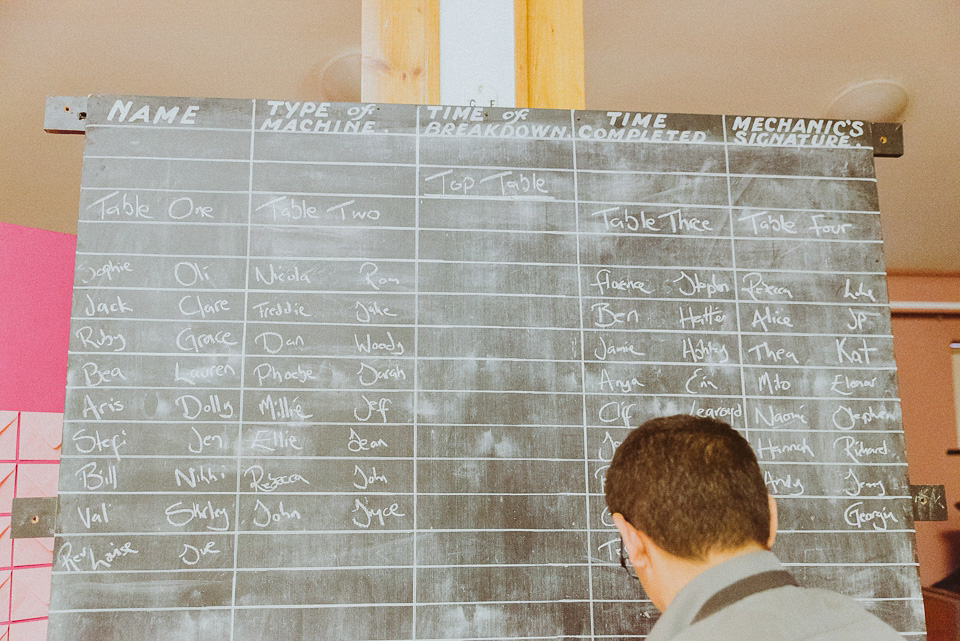 NAME TYPE of MACHINE. TIME of BREAKDOWN. TIME COMPLETED MECHANIC'S SIGNATURE.
Top Table
Table One Table Two Table Three Table Four
Sophie Oli Nicola Ron Florence Stephen Rebecca Luke
Jack Clare Freddie Jake Ben Hattie Alice JP
Ruby Grace Dan Woody Jamie Ashley Thea Kat
Bea Lauren Phoebe Sarah Anya Erin Milo Eleanor
Aris Dolly Millie Jeff Cliff Learoyd Naomi Stephen
Stefi Jen Ellie Sean Hannah Richard
Bill Nikki Rebecca John Andy Jenny
Val Shirley John Joyce Georgia
Rev Louise Sue